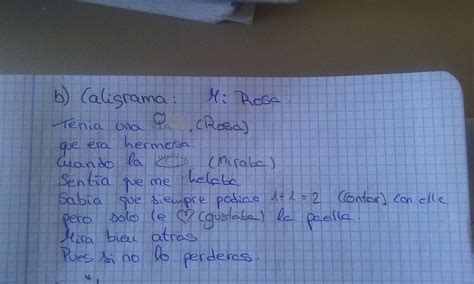 b) Caligrama: Mi Rosa.
Tenia una , (Rosa)
que era hermosa.
Cuando la (Miraba)
Sentia que me helaba
Sabia que siempre podias 1+1=2 (contar) con elle
pero solo le (gustaba) la paella.
Mira bien atras
Pues si no lo perderas.